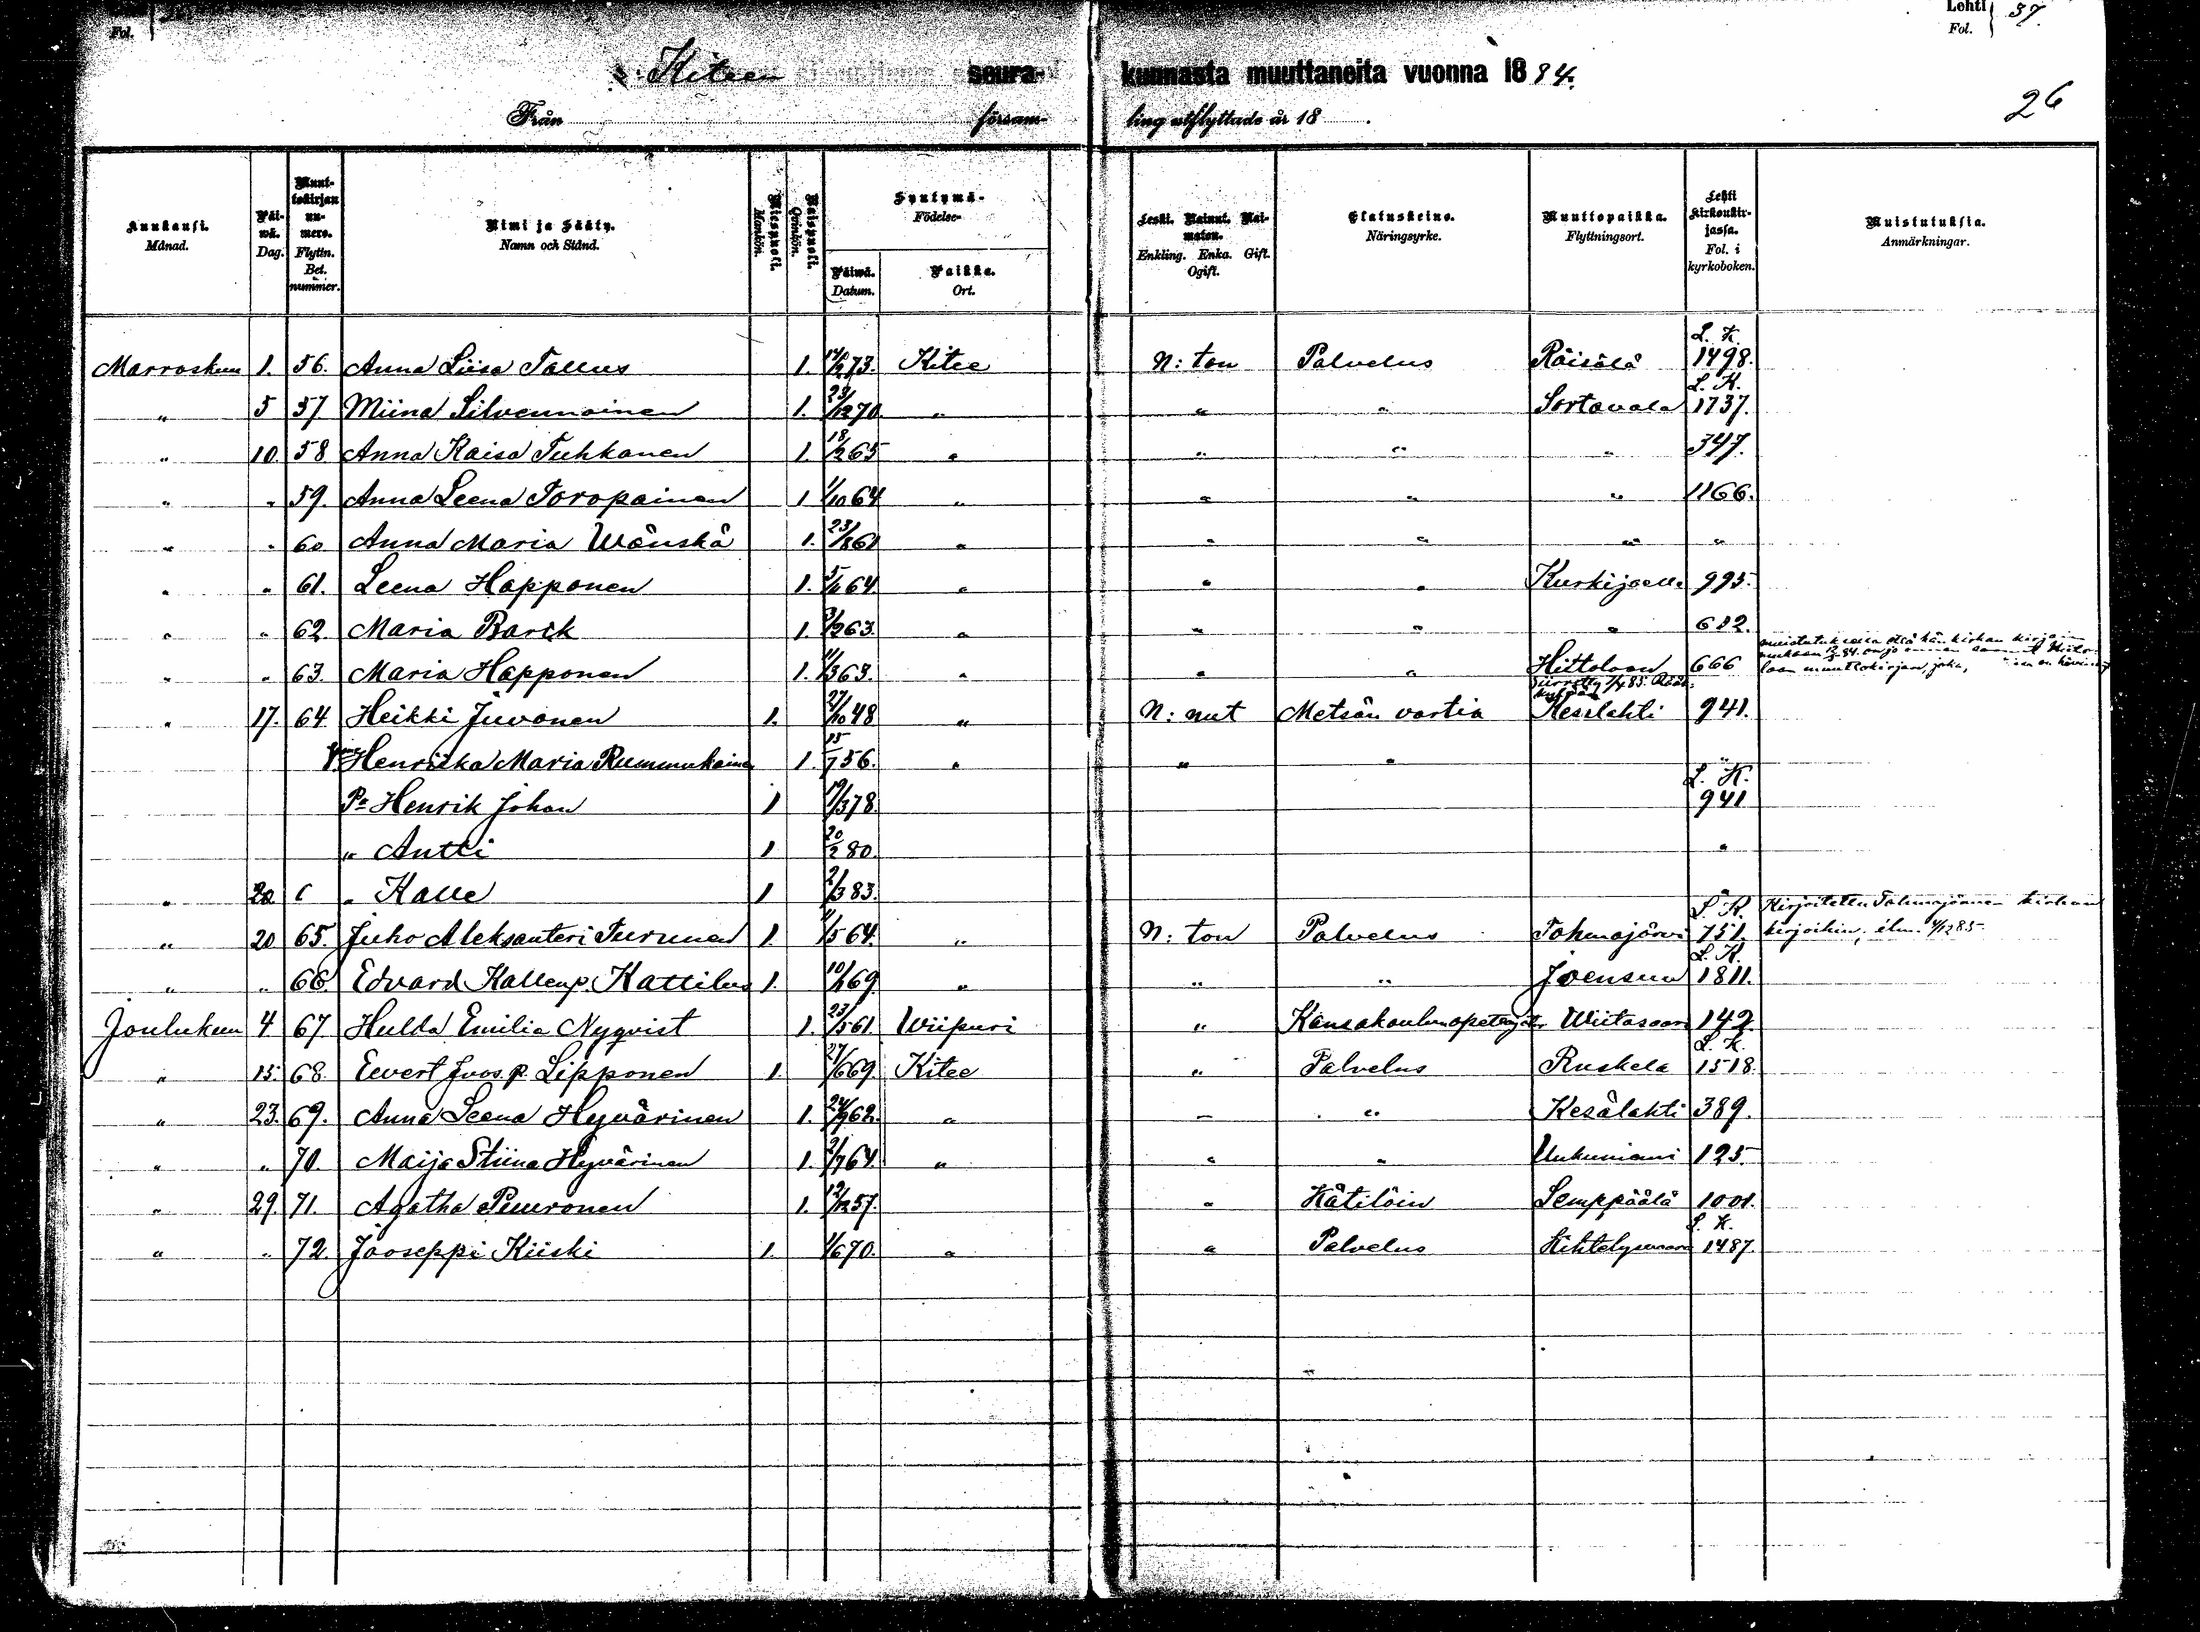 Fol.
Lehti
Fol. 37.
Kiteen seurakunnasta muuttaneita vuonna 1884.
Från försam- ling utflyttade år 18
26
Kuukausi. Månad.
Päiwä. Dag.
Muuttokirjan numero. Flyttn. Bet. nummer.
Nimi ja Sääty. Namn och Stånd.
Miespuoli. Mankön.
Naispuoli. Qvinkön.
Syntymä- Födelse-
Päiwä. Datum.
Paikka. Ort.
Leski. Nainut. Naimaton. Enkling. Enka. Gift. Ogift.
Elatuskeino. Näringsyrke.
Muuttopaikka. Flyttningsort.
Lehti kirkonkirjassa. Fol. i kyrkoboken.
Muistutuksia. Anmärkningar.
Marraskuu 1. 56. Anna Liisa Tallus 1. 14/2 73. Kitee N: ton Palvelus Räisälä L. K. 1498.
" 5 57 Miina Silvennoinen 1. 23/12 70. " " " Sortavala L. K. 1737.
" 10. 58 Anna Kaisa Tuhkanen 1. 18/2 65 " " " " 347.
" " 59. Anna Leena Toropainen 1 1/10 64 " " " " 1166.
" " 60 Anna Maria Wänskä 1. 23/8 61 " " " " "
" " 61. Leena Happonen 1. 64. " " " Kurkijoelle 995.
" " 62. Maria Barck 1. 3/2 63. " " " " 682.
" " 63. Maria Happonen 1. 11/3 63. " " " Hittolaan 666
" 17. 64. Heikki Juvonen 1. 27/10 48 " N: nut Metsän vartia Kesälahti 941.
Henriika Maria Rummukainen 1. 15/7 56. " " " "
Pa Henrik Johan 1 19/3 78. L. K. 941
" Antti 1 20/2 80. "
" 20 " Kalle 1 2/3 83. "
" 20 65. Juho Aleksanteri Turunen 1. 11/5 64. " N: ton Palvelus Tohmajärvi L. K. 751. Kirjoitettu Tohmajärven kirkon kirjoihin, ilm. 4/12 85.
" " 66. Edvard Kallenp. Kattilus 1. 69. " " " Joensuu L. K. 1811.
Joulukuu 4 67. Hulda Emilia Nyqvist 1. 23/5 61. Wiipuri " Kansakoulunopettajatar Wiitasaari 142.
" 15. 68. Eevert Juos. p. Lipponen 1. 27/6 69. Kitee " Palvelus Ruskela L. K. 1518.
" 23. 69. Anna Leena Hyvärinen 1. 24/9 62. " " " Kesälahti 389.
" " 70. Maija Stiina Hyvärinen 1. 2/7 64. " " " Uukuniemi 125.
" 29. 71. Agatha Puuronen 1. 12/12 57. " Kätilöin Lemppäälä 1001.
" " 72. Jooseppi Kiiski 1. 1/6 70. " " Palvelus Kihtelysvaara L. K. 1487.